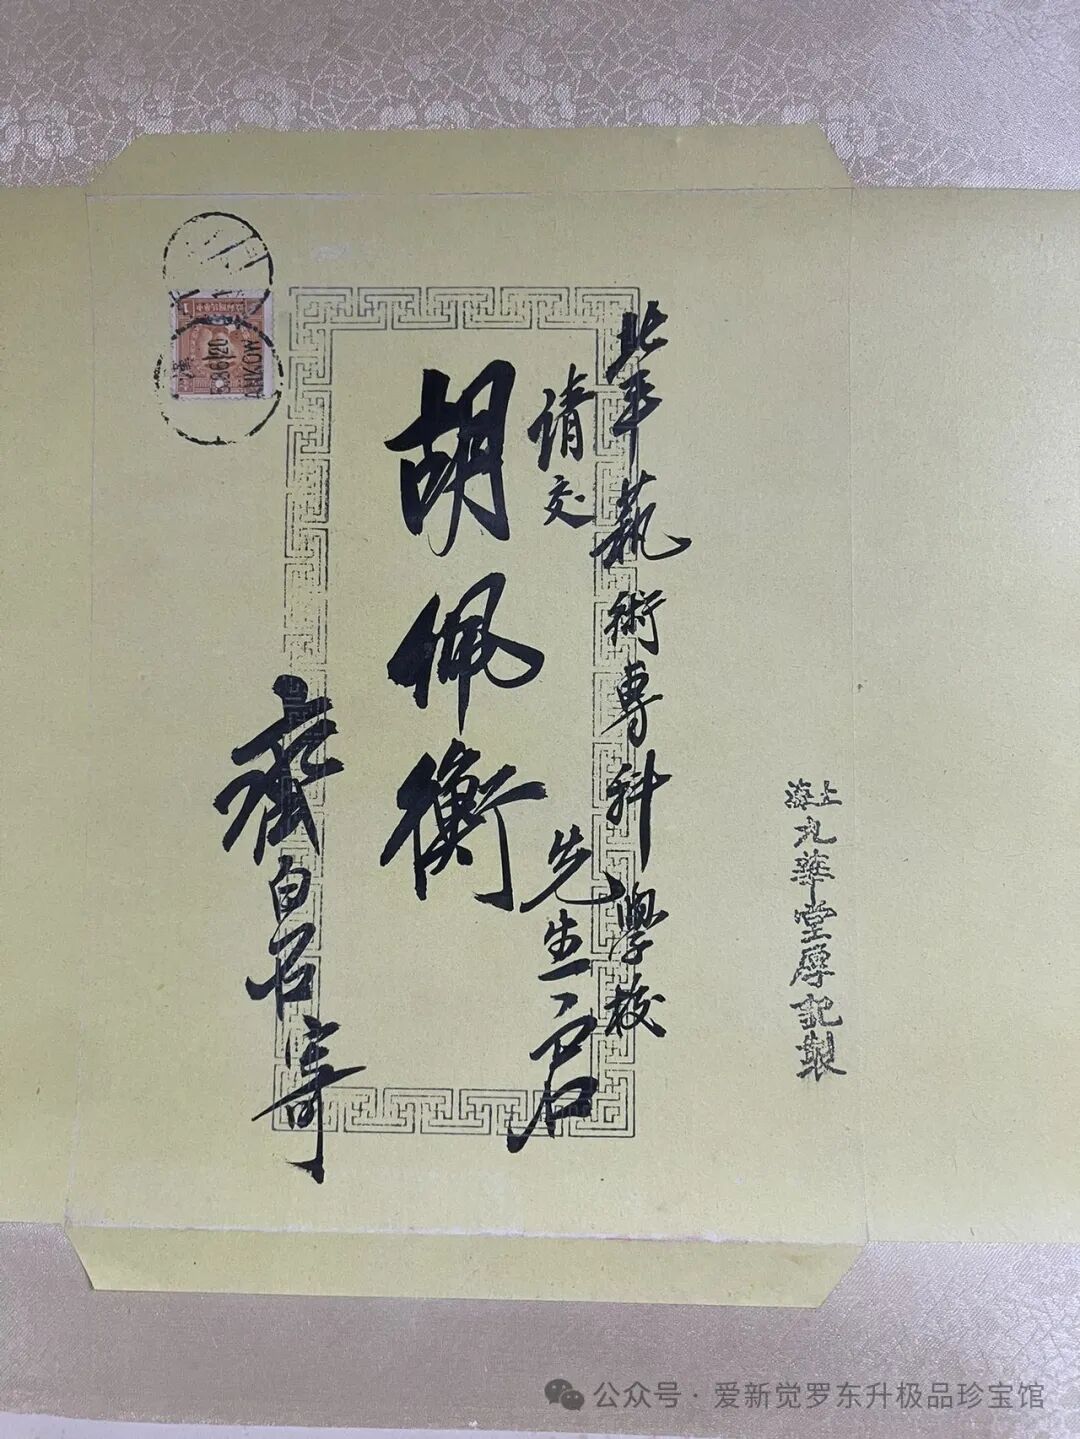 北平藝術專科學校
请交
胡佩衡
先生启
齊白石寄
上海九華堂厚記製
漢
ANKOW
公众号·爱新觉罗东升极品珍宝馆